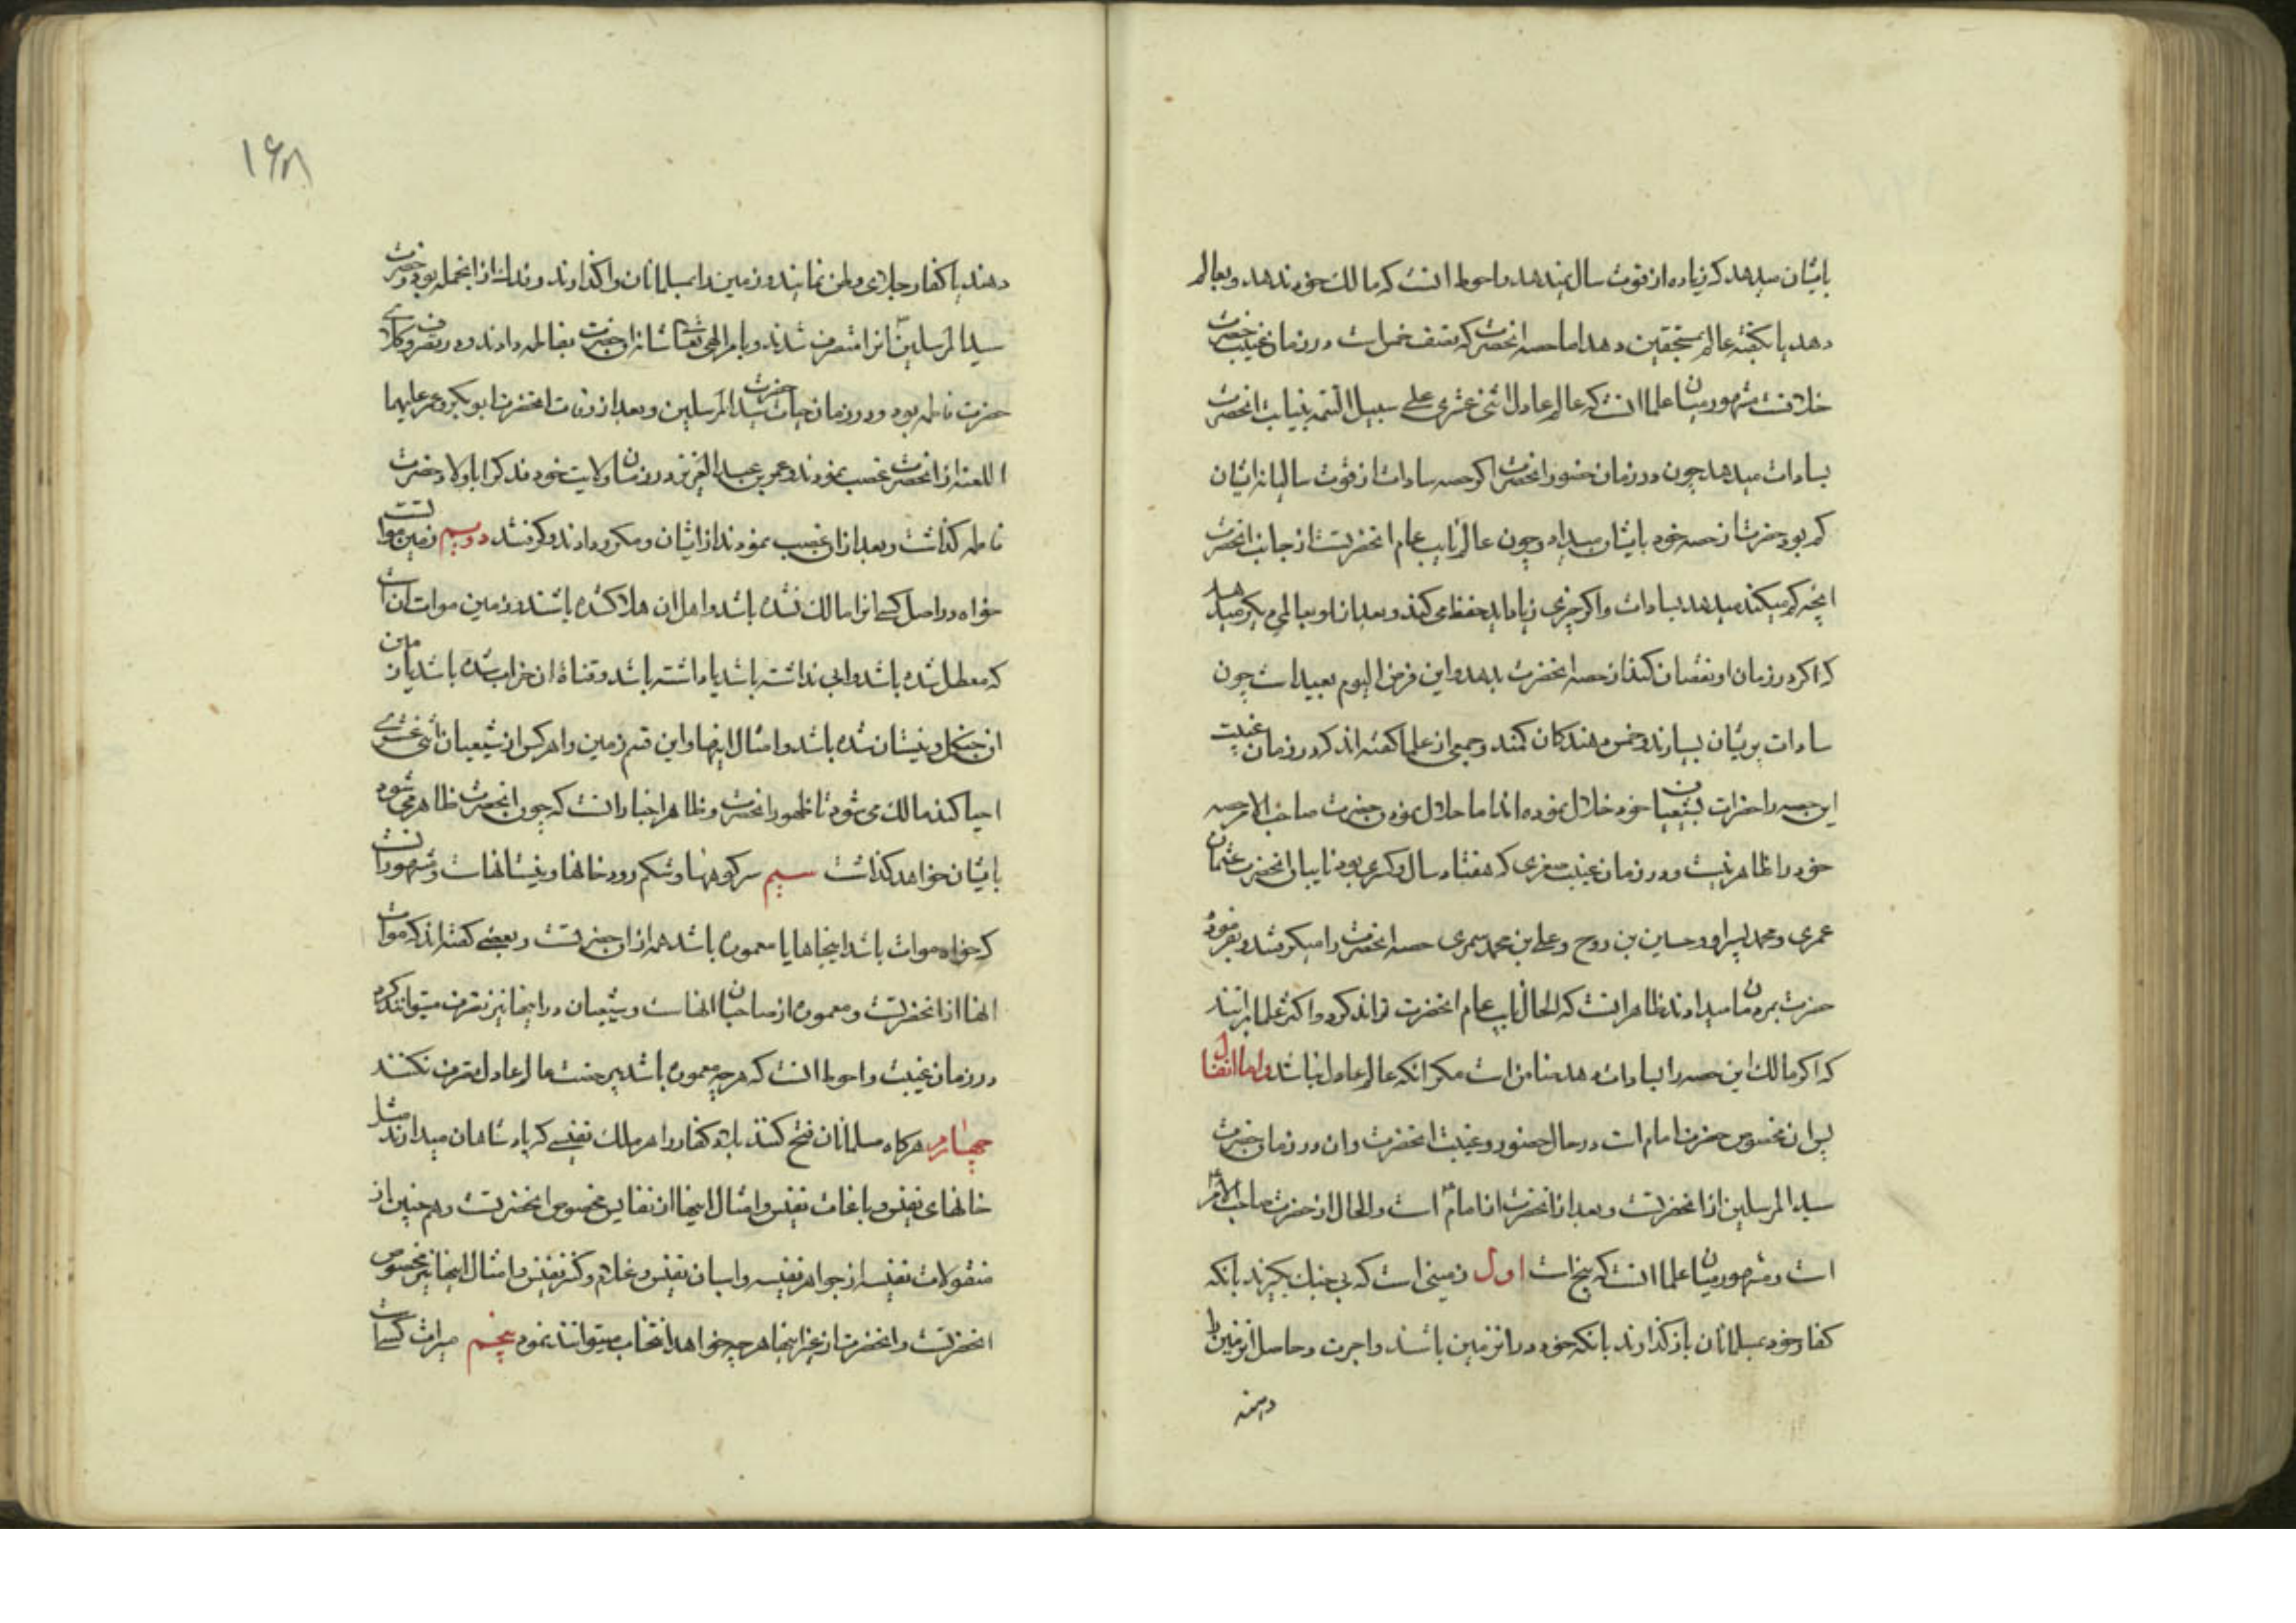 بایشان میدهد که زیاده از قوت سال ندهد و احوط انست که مالک خود ندهد و بعالم
دهد یا بگفته عالم بمستحقین دهد اما حصه انحضرت که نصف خمس است در زمان غیبت حضرت
خلافست مشهور میان علما انست که عالم عادل اثنی عشری علی سبیل التتمه بنیابت انحضرت
بسادات میدهد چون در زمان حضور انحضرت اگر حصه سادات از قوت سالیانه ایشان
کم بود حضرت از حصه خود بایشان میداد و چون عالم نایب عام انحضرتست از جانب انحضرت
انچه کم میکند میدهد بسادات و اگر چیزی زیاد اید حفظ می کند و بعد از او بعالمی دیگر میدهد
که اگر در زمان او نقصان کند از حصه انحضرت بدهد و این فرض الیوم بعید است چون
سادات پریشان بسیارند و خمس دهندکان کمند و جمعی از علما کفته اند که در زمان غیبت
این حصه را حضرات بشیعیان خود حلال نموده اند اما حلال نمودن حضرت صاحب الامر حصه
خود را ظاهر نیست و در زمان غیبت صغری که هفتاد سال و کسری بود نایبان انحضرت عثمان
عمری و محمد پسر او و حسین بن روح و علی بن محمد سمری حصه انحضرت را میکرفتند و بفرموده
حضرت بمردمان میدادند ظاهر انست که الحال نایب عام انحضرت تواند کرد و اکثر علما برانند
که اگر مالک این حصه را بسادات دهد ضامن است مکر انکه عالم عادل نباشد و اما انفال
پس ان مخصوص حضرت امام است در حال حضور و غیبت انحضرت و ان در زمان حضرت
سید المرسلین از انحضرتست و بعد از انحضرت از امام است و الحال از حضرت صاحب الامر
است و مشهور میان علما انست که پنج است اول زمینی است که بی جنک بکیرند بانکه
کفار خود بمسلمانان باز کذارند بانکه خود در ان زمین باشند و اجرت و حاصل ان زمین را
دهند
۱۶۸
دهند یا کفار جلای وطن نمایند و زمین را بمسلمانان واکذارند و فدک از انجمله بود و حضرت
سید المرسلین انرا متصرف شدند و بامر الهی تعالی شانه ان حضرت بفاطمه دادند و در تصرف وکلای
حضرت فاطمه بود و در زمان حیات حضرت سید المرسلین و بعد از وفات انحضرت ابوبکر و عمر علیهما
اللعنه از انحضرت غصب نمودند و عمر بن عبد العزیز در زمان ولایت خود فدک را باولاد حضرت
فاطمه کذاشت و بعد از ان غصب نمودند از ایشان و مکرر دادند و کرفتند دویم زمین مواتست
خواه در اصل کسی انرا مالک نشده باشد و اهل ان هلاک شده باشند و زمین موات انست
که معطل شده باشد و ابی نداشته باشد یا داشته باشد و قناة ان خراب شده باشد یا زمین
ان جنکل و نیستان شده باشد و امثال اینها و این قسم زمین را هر کس از شیعیان اثنی عشری
احیا کند مالک می شود تا ظهور انحضرت و ظاهر اخبار انست که چون انحضرت ظاهر می شود
بایشان خواهد کذاشت سیم سر کوهها و شکم رود خانها و نیستانهاست و مشهور انست
که خواه موات باشد اینجاها یا معموره باشد همه از ان حضرتست و بعضی کفته اند که موات
انها از انحضرتست و معموره از صاحبان انهاست و شیعیان در اینها نیز تصرف میتوانند کرد
در زمان غیبت و احوط انست که هر چه معموره باشد بی رخصت عالم عادل تصرف نکنند
چهارم هرکاه مسلمانان فتح کنند بلاد کفار را هر ملک نفیسی که پادشاهان میدارند مثل
خانهای نفیس و باغات نفیس و امثال اینها از نفایس مخصوص انحضرتست و هم چنین از
منقولات نفیسه از جواهر نفیسه و اسبان نفیس و غلام و کنیز نفیس و امثال اینها نیز مخصوص
انحضرتست و انحضرت از غیر اینها هر چه خواهد انتخاب میتوانند نمود پنجم میراث کسی است